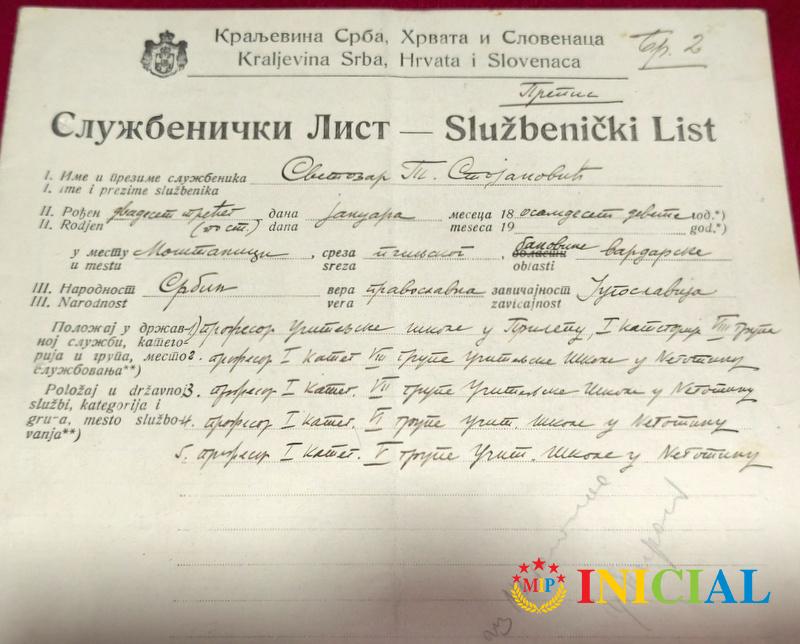 Краљевина Срба, Хрвата и Словенаца
Kraljevina Srba, Hrvata i Slovenaca
Бр. 2
Препис
Службенички Лист — Službenički List
I. Име и презиме службеника Светозар Т. Стојановић
I. Ime i prezime službenika
II. Рођен двадесет трећег дана јануара месеца 18 осамдесет девете год.*)
II. Rodjen (по ст.) dana meseca 19 god.*)
у месту Моштаници, среза пчињског области бановине вардарске
u mestu sreza oblasti
III. Народност Србин вера православна завичајност Југославија
III. Narodnost vera zavicajnost
Положај у држав- 1) професор Учитељске школе у Прилепу, I категорије VIII групе
ној служби, катего-
рија и група, место 2. професор I катег. VIII групе Учитељске Школе у Неготину
службовања**)
Položaj u državnoj 3. професор I катег. VII групе Учитељске Школе у Неготину
službi, kategorija i
grupa, mesto služбо- 4. професор I катег. VI групе Учит. школе у Неготину
vanja**)
5. професор I катег. V групе Учит. школе у Неготину
MIP
INICIAL